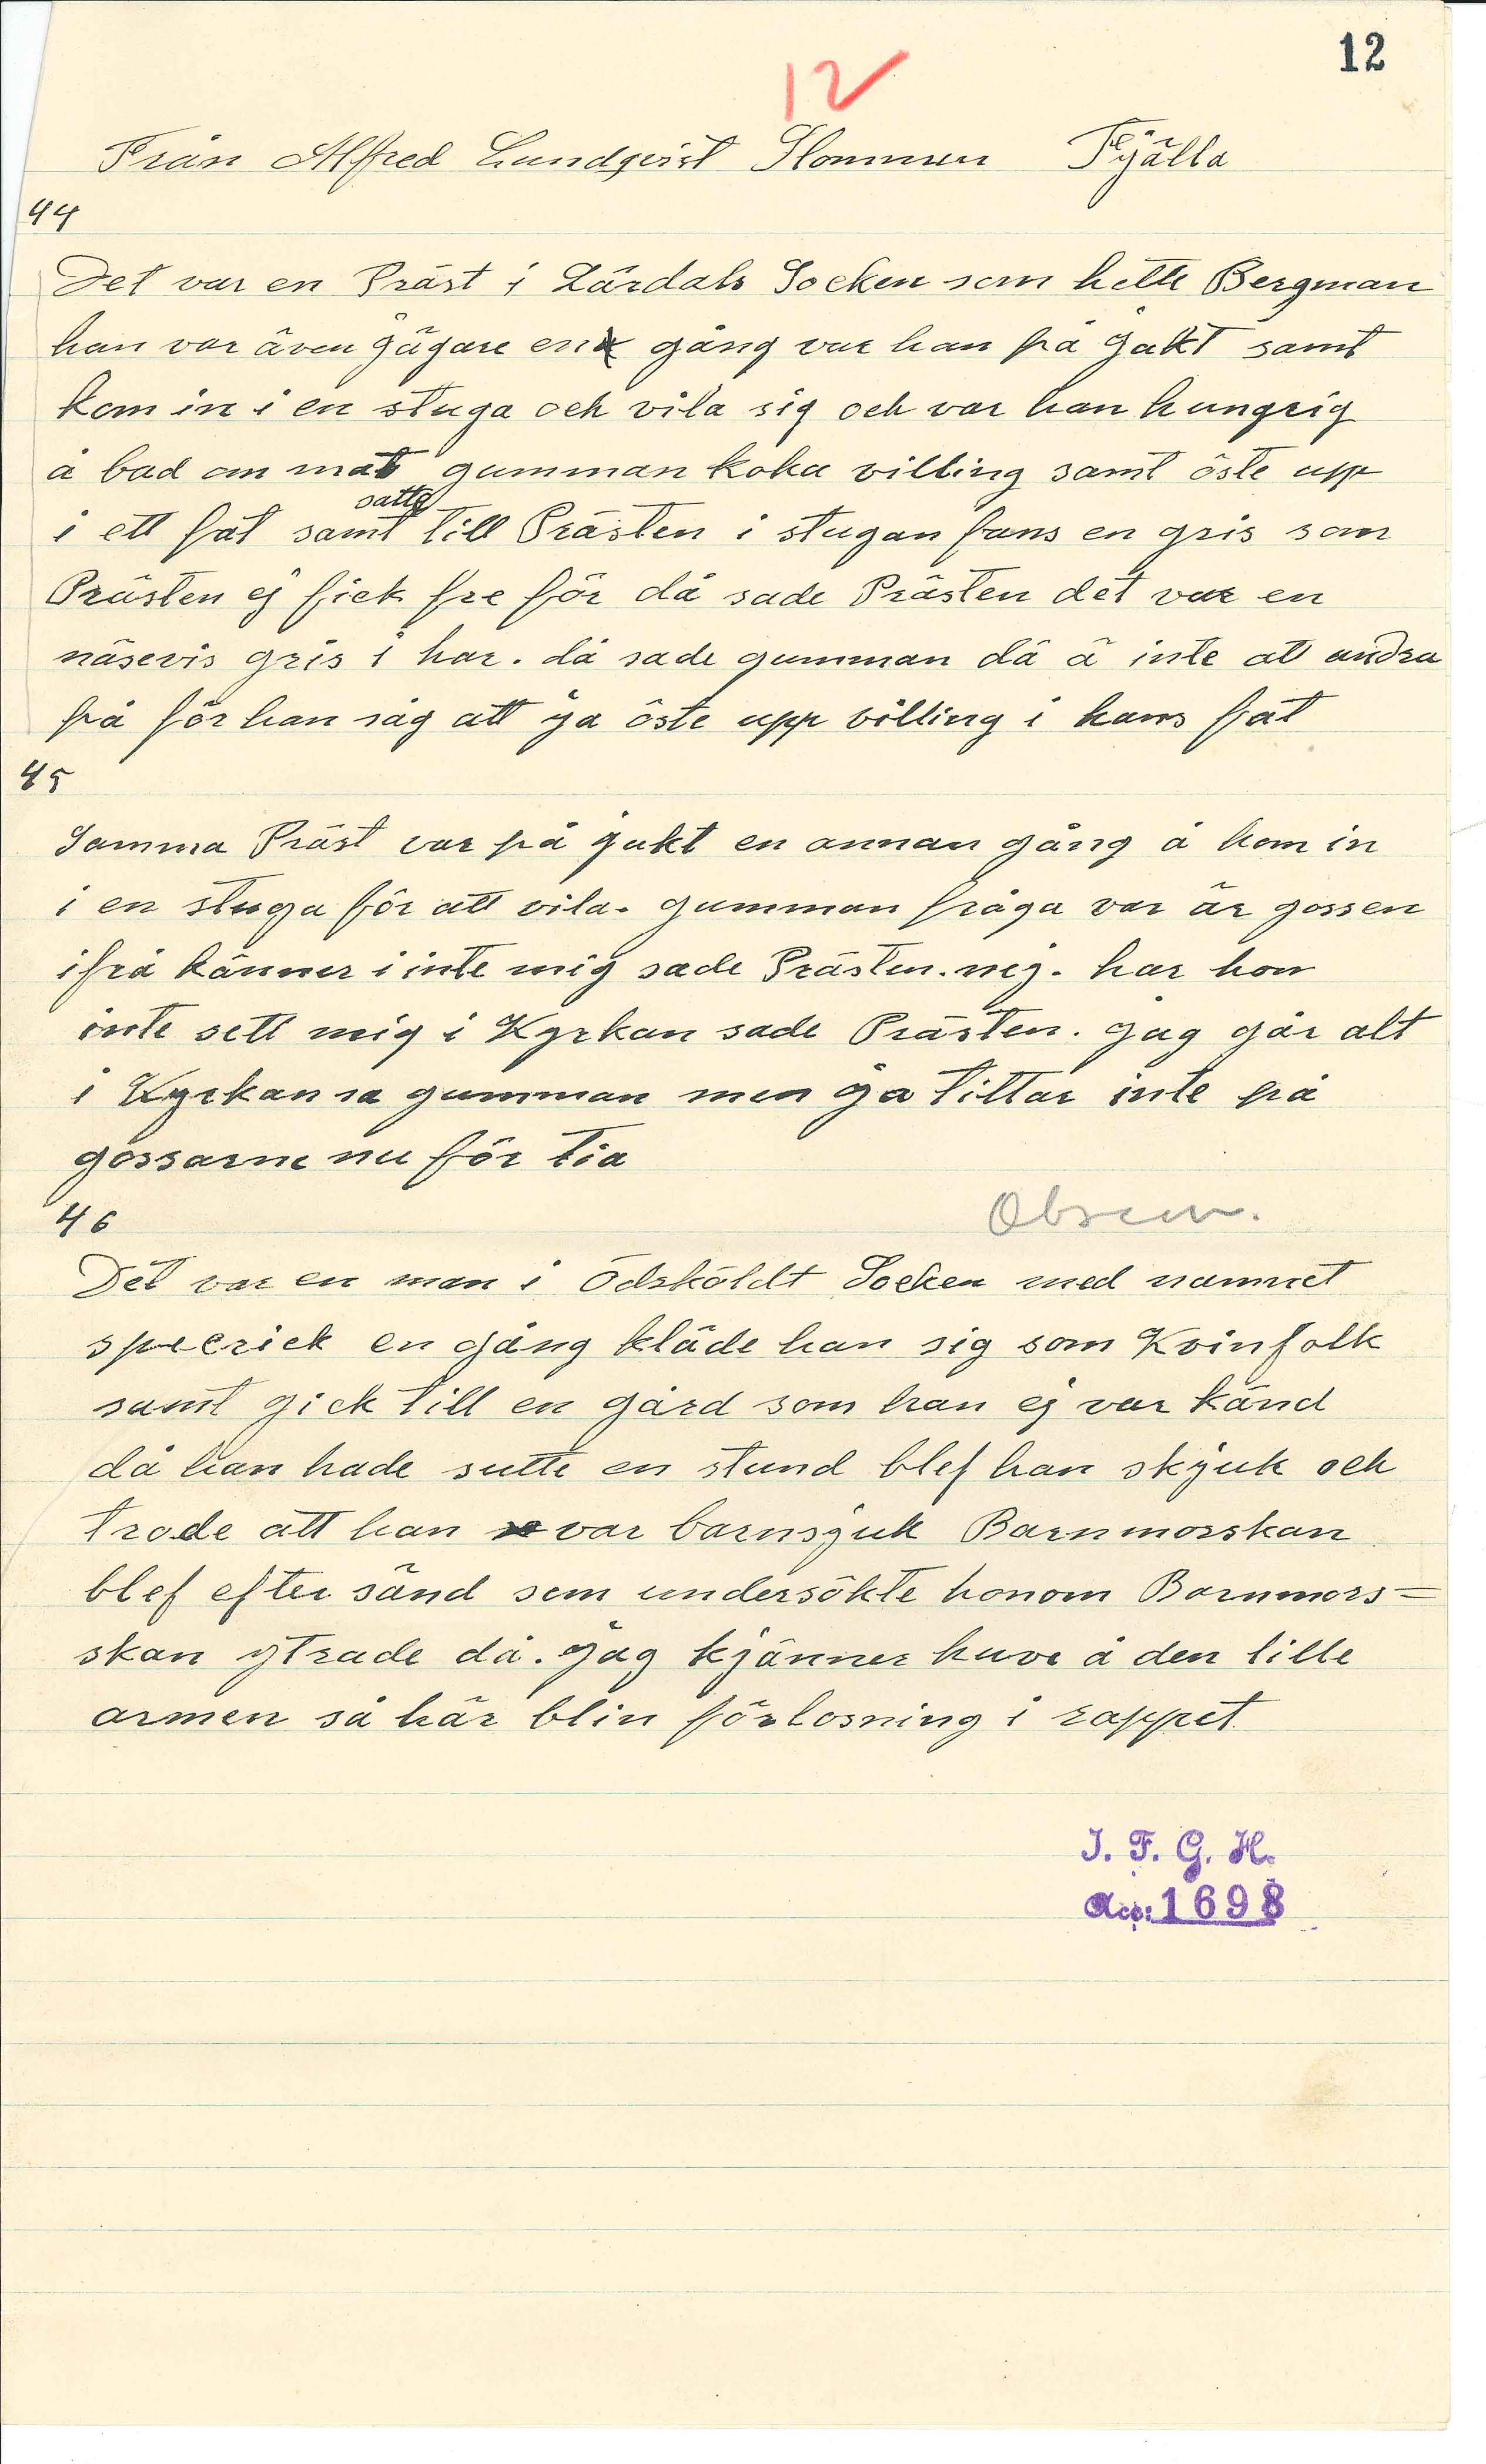 12
12
Från Alfred Lundqvist Slommen Fjälla
44
Det var en Präst i Lärdals Socken som hette Bergman
han var även jägare en gång var han på jakt samt
kom in i en stuga och vila sig och var han hungrig
å bad om mat gumman koka villing samt öste upp
i ett fat samt satte till Prästen i stugan fans en gris som
Prästen ej fick fre för då sade Prästen det var en
näsevis gris i har. då sade gumman dä ä inte att undra
på för han såg att ja öste upp villing i hans fat
45
Samma Präst var på jakt en annan gång å kom in
i en stuga för att vila. gumman fråga var är gossen
ifrå känner i inte mig sade Prästen. nej. har hon
inte sett mig i Kyrkan sade Prästen. jag går alt
i Kyrkan sa gumman men ja tittar inte på
gossarne nu för tia
46
Obscen.
Det var en man i Ödsköldt Socken med namnet
specrick en gång kläde han sig som Kvinfolk
samt gick till en gård som han ej var känd
då han hade sutte en stund blef han skjuk och
trode att han var barnsjuk Barnmorskan
blef efter sänd som undersökte honom Barnmors=
skan ytrade då. jag kjänner huve å den lille
armen så här blin förlosning i rappet
I. F. G. H.
Acc: 1698